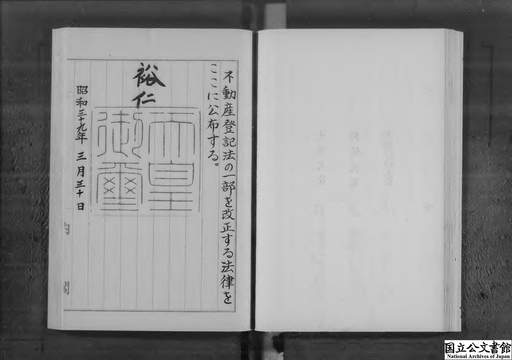 不動産登記法の一部を改正する法律を
ここに公布する。
裕仁
天皇
御璽
昭和三十九年三月三十日
国立公文書館
National Archives of Japan